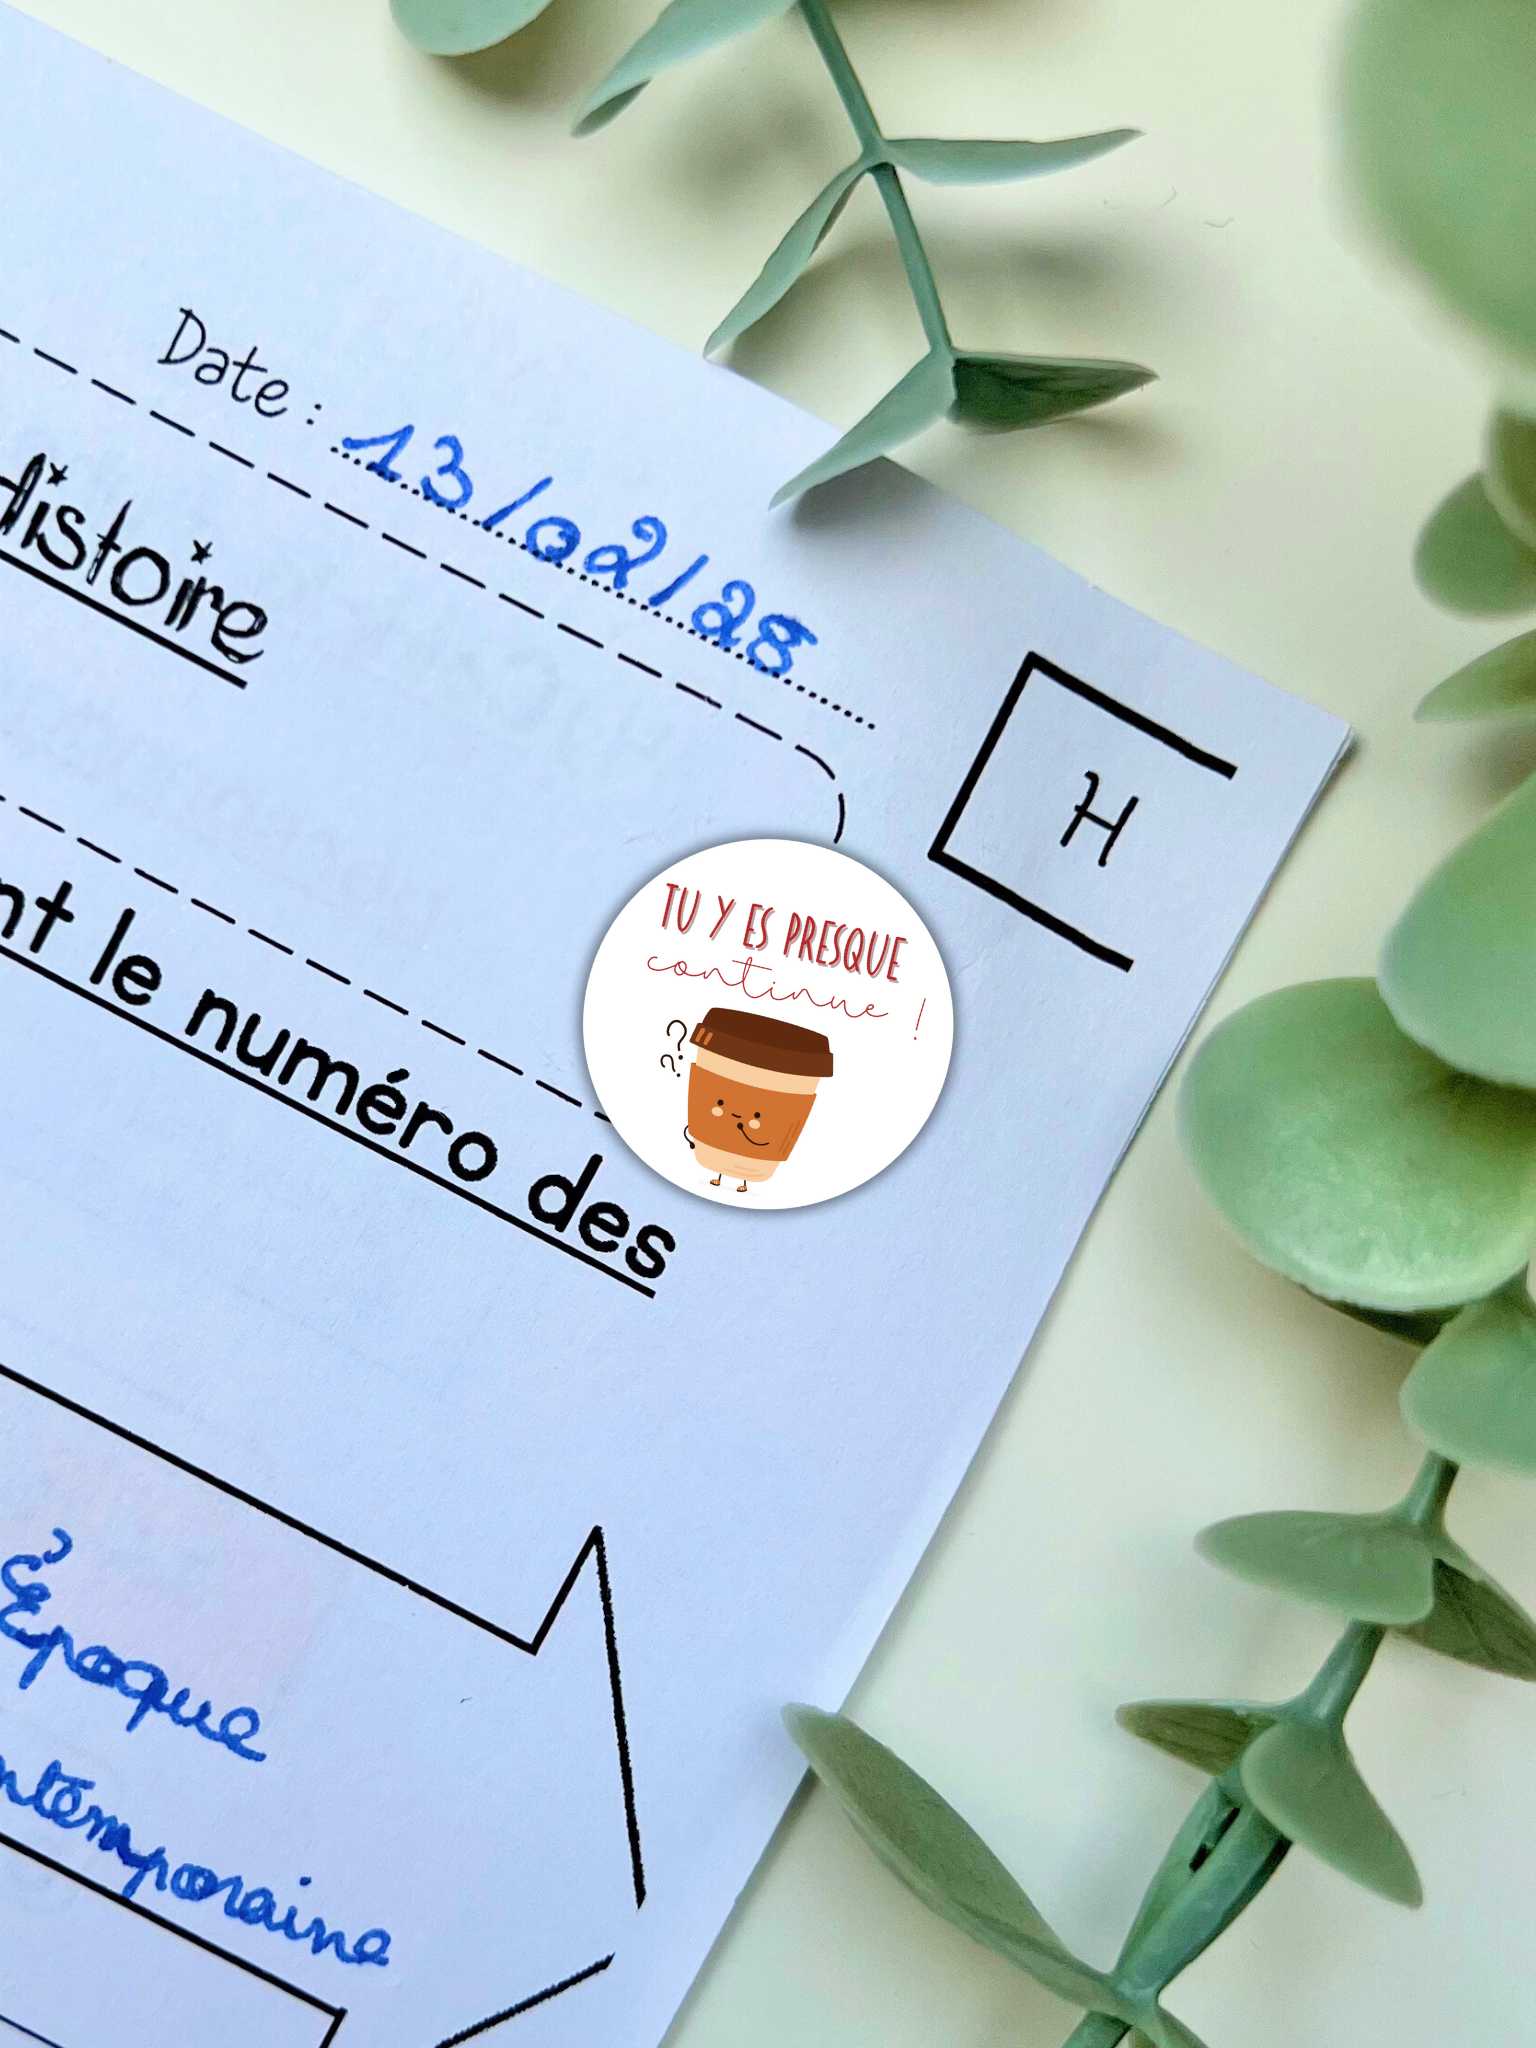 Date : 13/02/28
Histoire
H
TU Y ES PRESQUE
continue !
nt le numéro des
? ?
Époque
ntémporaine